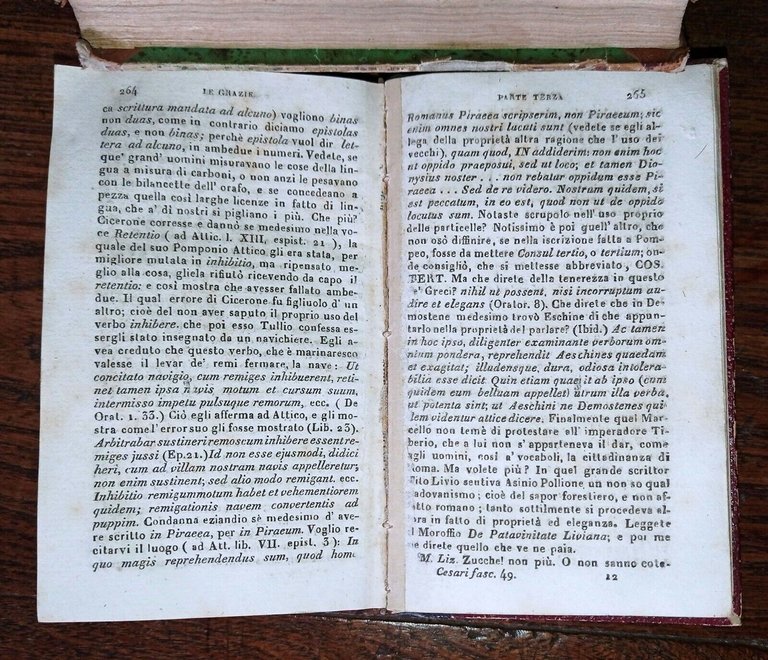 264 LE GRAZIE
ca scrittura mandata ad alcuno) vogliono binas
non duas, come in contrario diciamo epistolas
duas, e non binas; perchè epistola vuol dir let-
tera ad alcuno, in ambedue i numeri. Vedete, se
que' grand' uomini misuravano le cose della lin-
gua a misura di carboni, o non anzi le pesavano
con le bilancette dell' orafo, e se concedeano a
pezza quella così larghe licenze in fatto di lin-
gua, che a' dì nostri si pigliano i più. Che più?
Cicerone corresse e dannò se medesimo nella vo-
ce Retentio ( ad Attic. l. XIII, espist. 21 ), la
quale del suo Pomponio Attico gli era stata, per
migliore mutata in inhibitio, ma ripensato me-
glio alla cosa, gliela rifiutò ricevendo da capo il
retentio: e così mostra che avesser fallato ambe-
due. Il qual errore di Cicerone fu figliuolo d' un
altro; cioè del non aver saputo il proprio uso del
verbo inhibere. che poi esso Tullio confessa es-
sergli stato insegnato da un navichiere. Egli a-
vea creduto che questo verbo, che è marinaresco
valesse il levar de' remi fermare, la nave: Ut
concitato navigio, cum remiges inhibuerent, reti-
net tamen ipsa navis motum et cursum suum,
intermisso impetu pulsuque remorum, ecc. ( De
Orat. 1. 33.) Ciò egli afferma ad Attico, e gli mo-
stra com' l'error suo gli fosse mostrato (Lib. 23).
Arbitrabar sustineri remos cum inhibere essent re-
miges jussi (Ep. 21.) Id non esse ejusmodi, didici
heri, cum ad villam nostram navis appelleretur;
non enim sustinent; sed alio modo remigant. ecc.
Inhibitio remigum motum habet et vehementiorem
quidem; remigationis navem convertentis ad
puppim. Condanna eziandio sè medesimo d' ave-
re scritto in Piraeea, per in Piraeum. Voglio re-
citarvi il luogo ( ad Att. lib. VII. epist. 3 ): In
quo magis reprehendendus sum, quod homo
PARTE TERZA 265
Romanus Piraeea scripserim, non Piraeeum; sic
enim omnes nostri lucuti sunt (vedete se egli al-
lega della proprietà altra ragione che l' uso dei
vecchi), quam quod, IN addiderim: non enim hoc
ut oppido praeposui, sed ut loco; et tamen Dio-
nysius noster . . . non rebatur oppidum esse Pi-
raeea . . . Sed de re videro. Nostrum quidem, si
est peccatum, in eo est, quod non ut de oppido
locutus sum. Notaste scrupolo nell' uso proprio
delle particelle? Notissimo è poi quell' altro, che
non osò diffinire, se nella iscrizione fatta a Pom-
peo, fosse da mettere Consul tertio, o tertium; on-
de consigliò, che si mettesse abbreviato, COS.
TERT. Ma che direte della tenerezza in questo
de' Greci? nihil ut possent, nisi incorruptum au-
dire et elegans (Orator. 8). Che direte che in De-
mostene medesimo trovò Eschine di che appun-
tarlo nella proprietà del parlare? (Ibid.) Ac tamen
in hoc ipso, diligenter examinante verborum om-
nium pondera, reprehendit Aeschines quaedam
et exagitat; illudensque, dura, odiosa intolera-
bilia esse dicit Quin etiam quaerit ab ipso (cum
quidem eum belluam appellet) utrum illa verba,
ut potenta sint; ut Aeschini ne Demostenes qui-
dem videntur attice dicere. Finalmente quel Mar-
cello non temè di protestare all' imperadore Ti-
berio, che a lui non s' apparteneva il dar, come
agli uomini, così a' vocaboli, la cittadinanza di
Roma. Ma volete più? In quel grande scrittor
Tito Livio sentiva Asinio Pollione un non so qual
padovanismo; cioè del sapor forestiero, e non af-
fatto romano; tanto sottilmente si procedeva al-
lora in fatto di proprietà ed eleganza. Leggete
il Moroffio De Patavinitate Liviana; e poi me
ne direte quello che ve ne paia.
M. Liz. Zucche! non più. O non sanno cote-
Cesari fasc. 49. 12